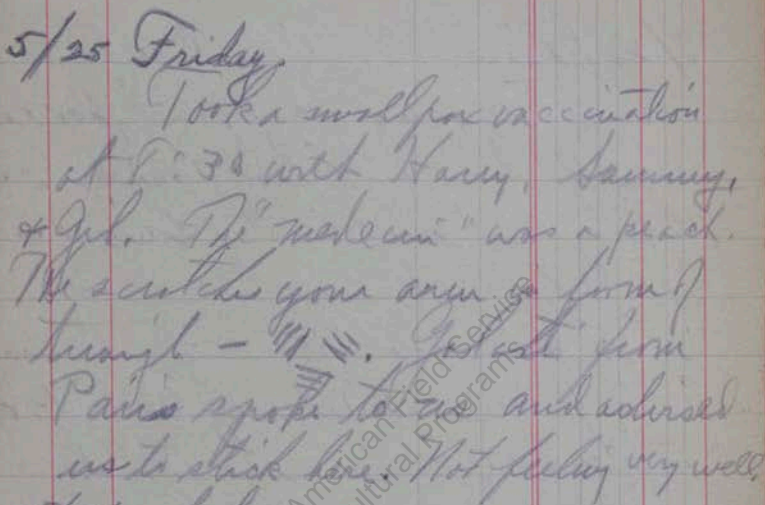 5/25 Friday.
Took a smallpox vaccination
at 8:30 with Harry, Sammy,
& Gil. The "medecin" was a peach.
He scratches your arm in form of
triangle - . from
Paris spoke to us and advised
us to stick here. Not feeling very well.
American Field Service
Cultural Programs